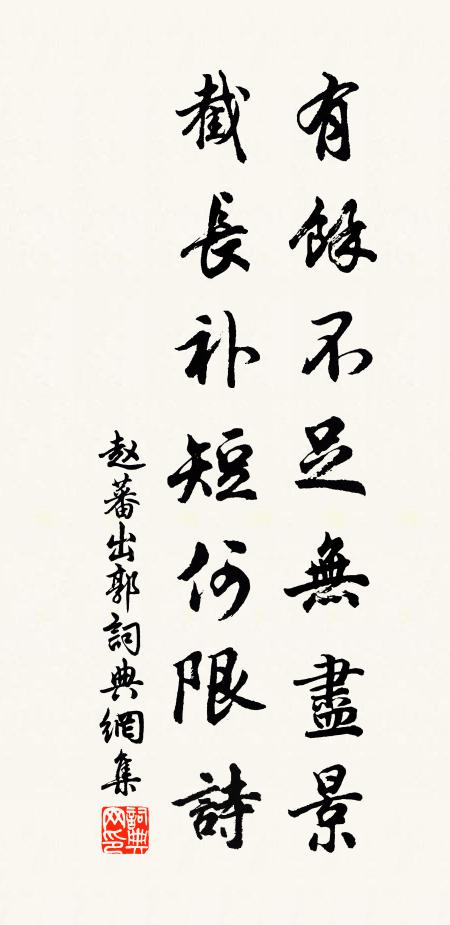 有餘不足無盡景
截長补短何限詩
赵蕃出郭詞典網集
詞典网印